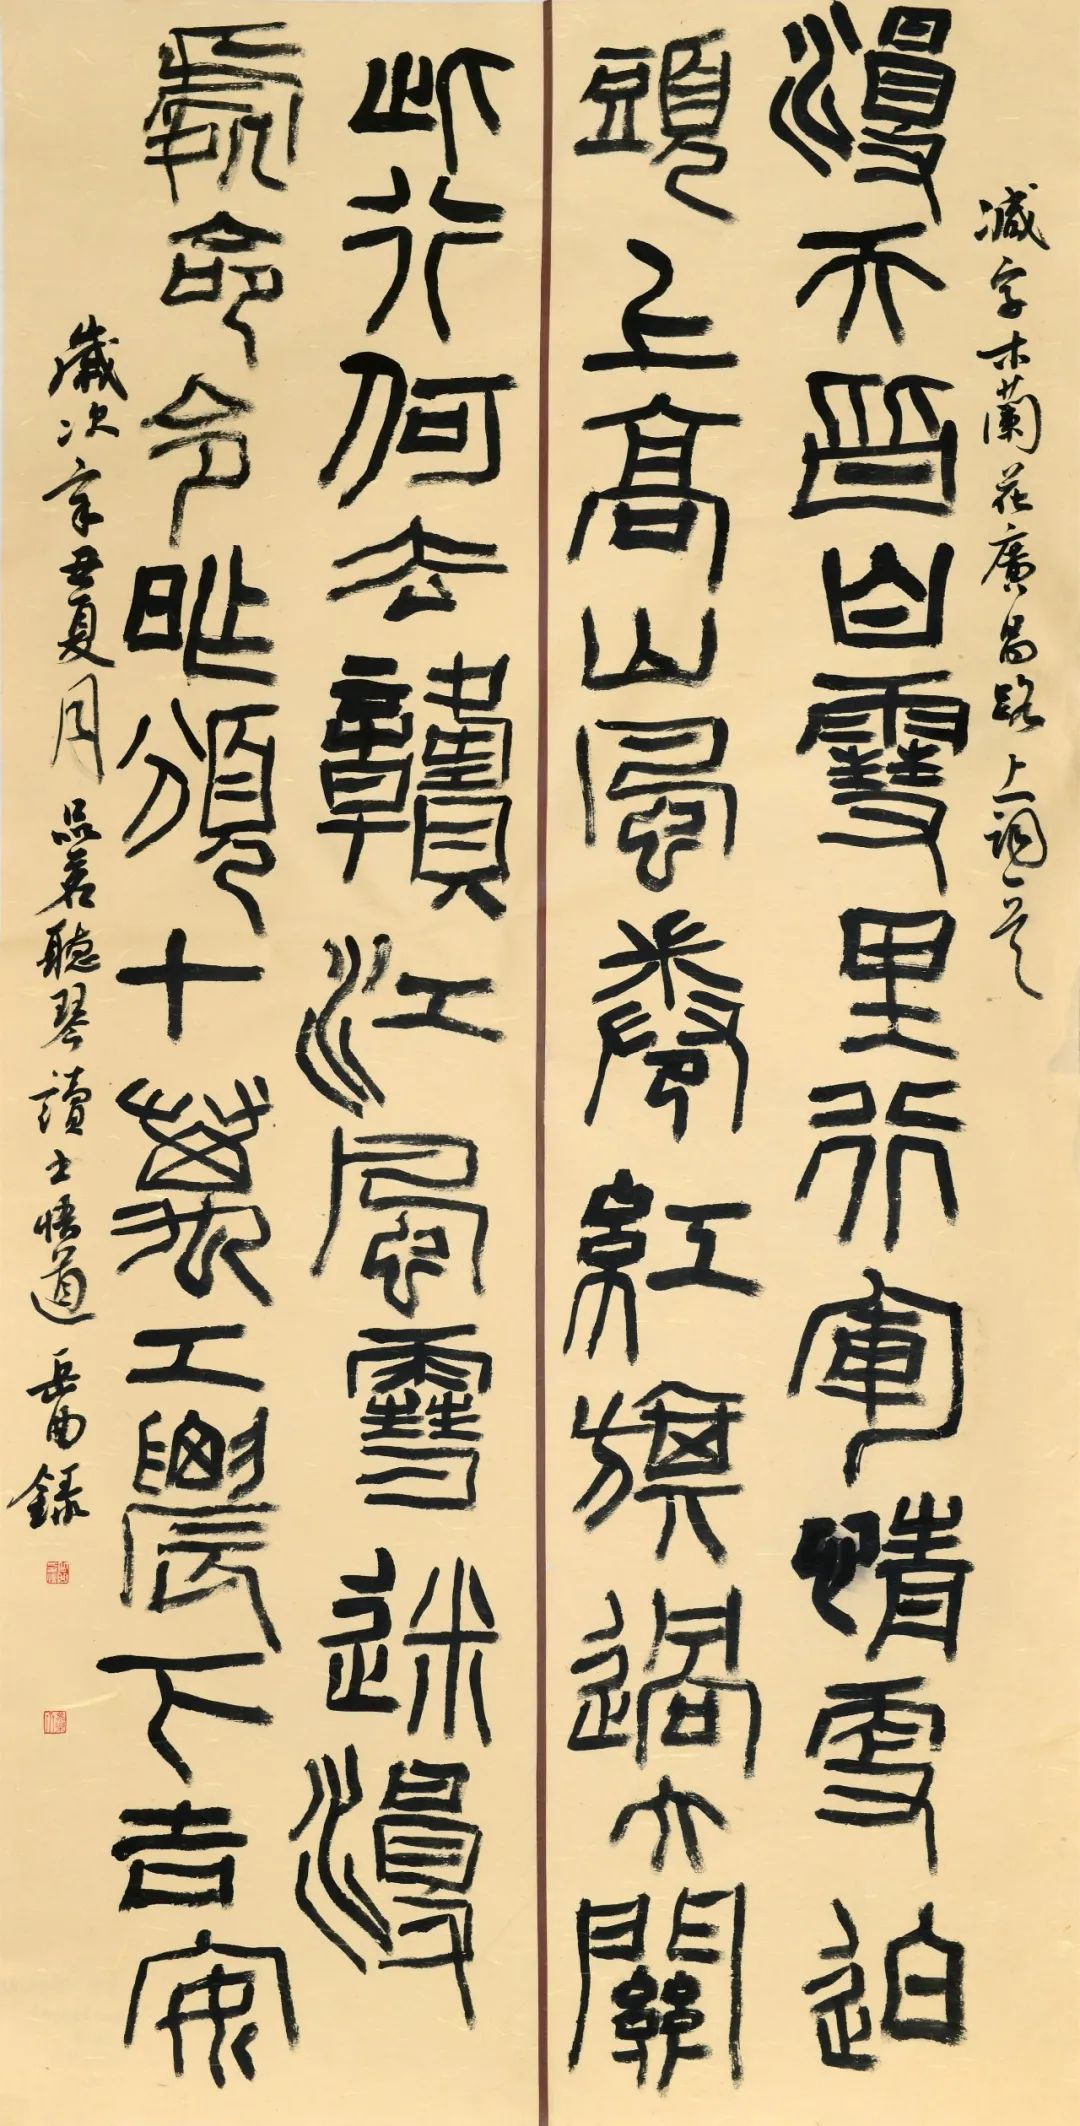 減字木蘭花廣昌路上詞一首
漫天皆白雪里行軍情更迫
頭上高山風卷紅旗過大關
此行何去贛江風雪迷漫
處命令昨頒十萬工農下吉安
歲次辛丑夏月品茗聽琴讀書悟道 岳 錄